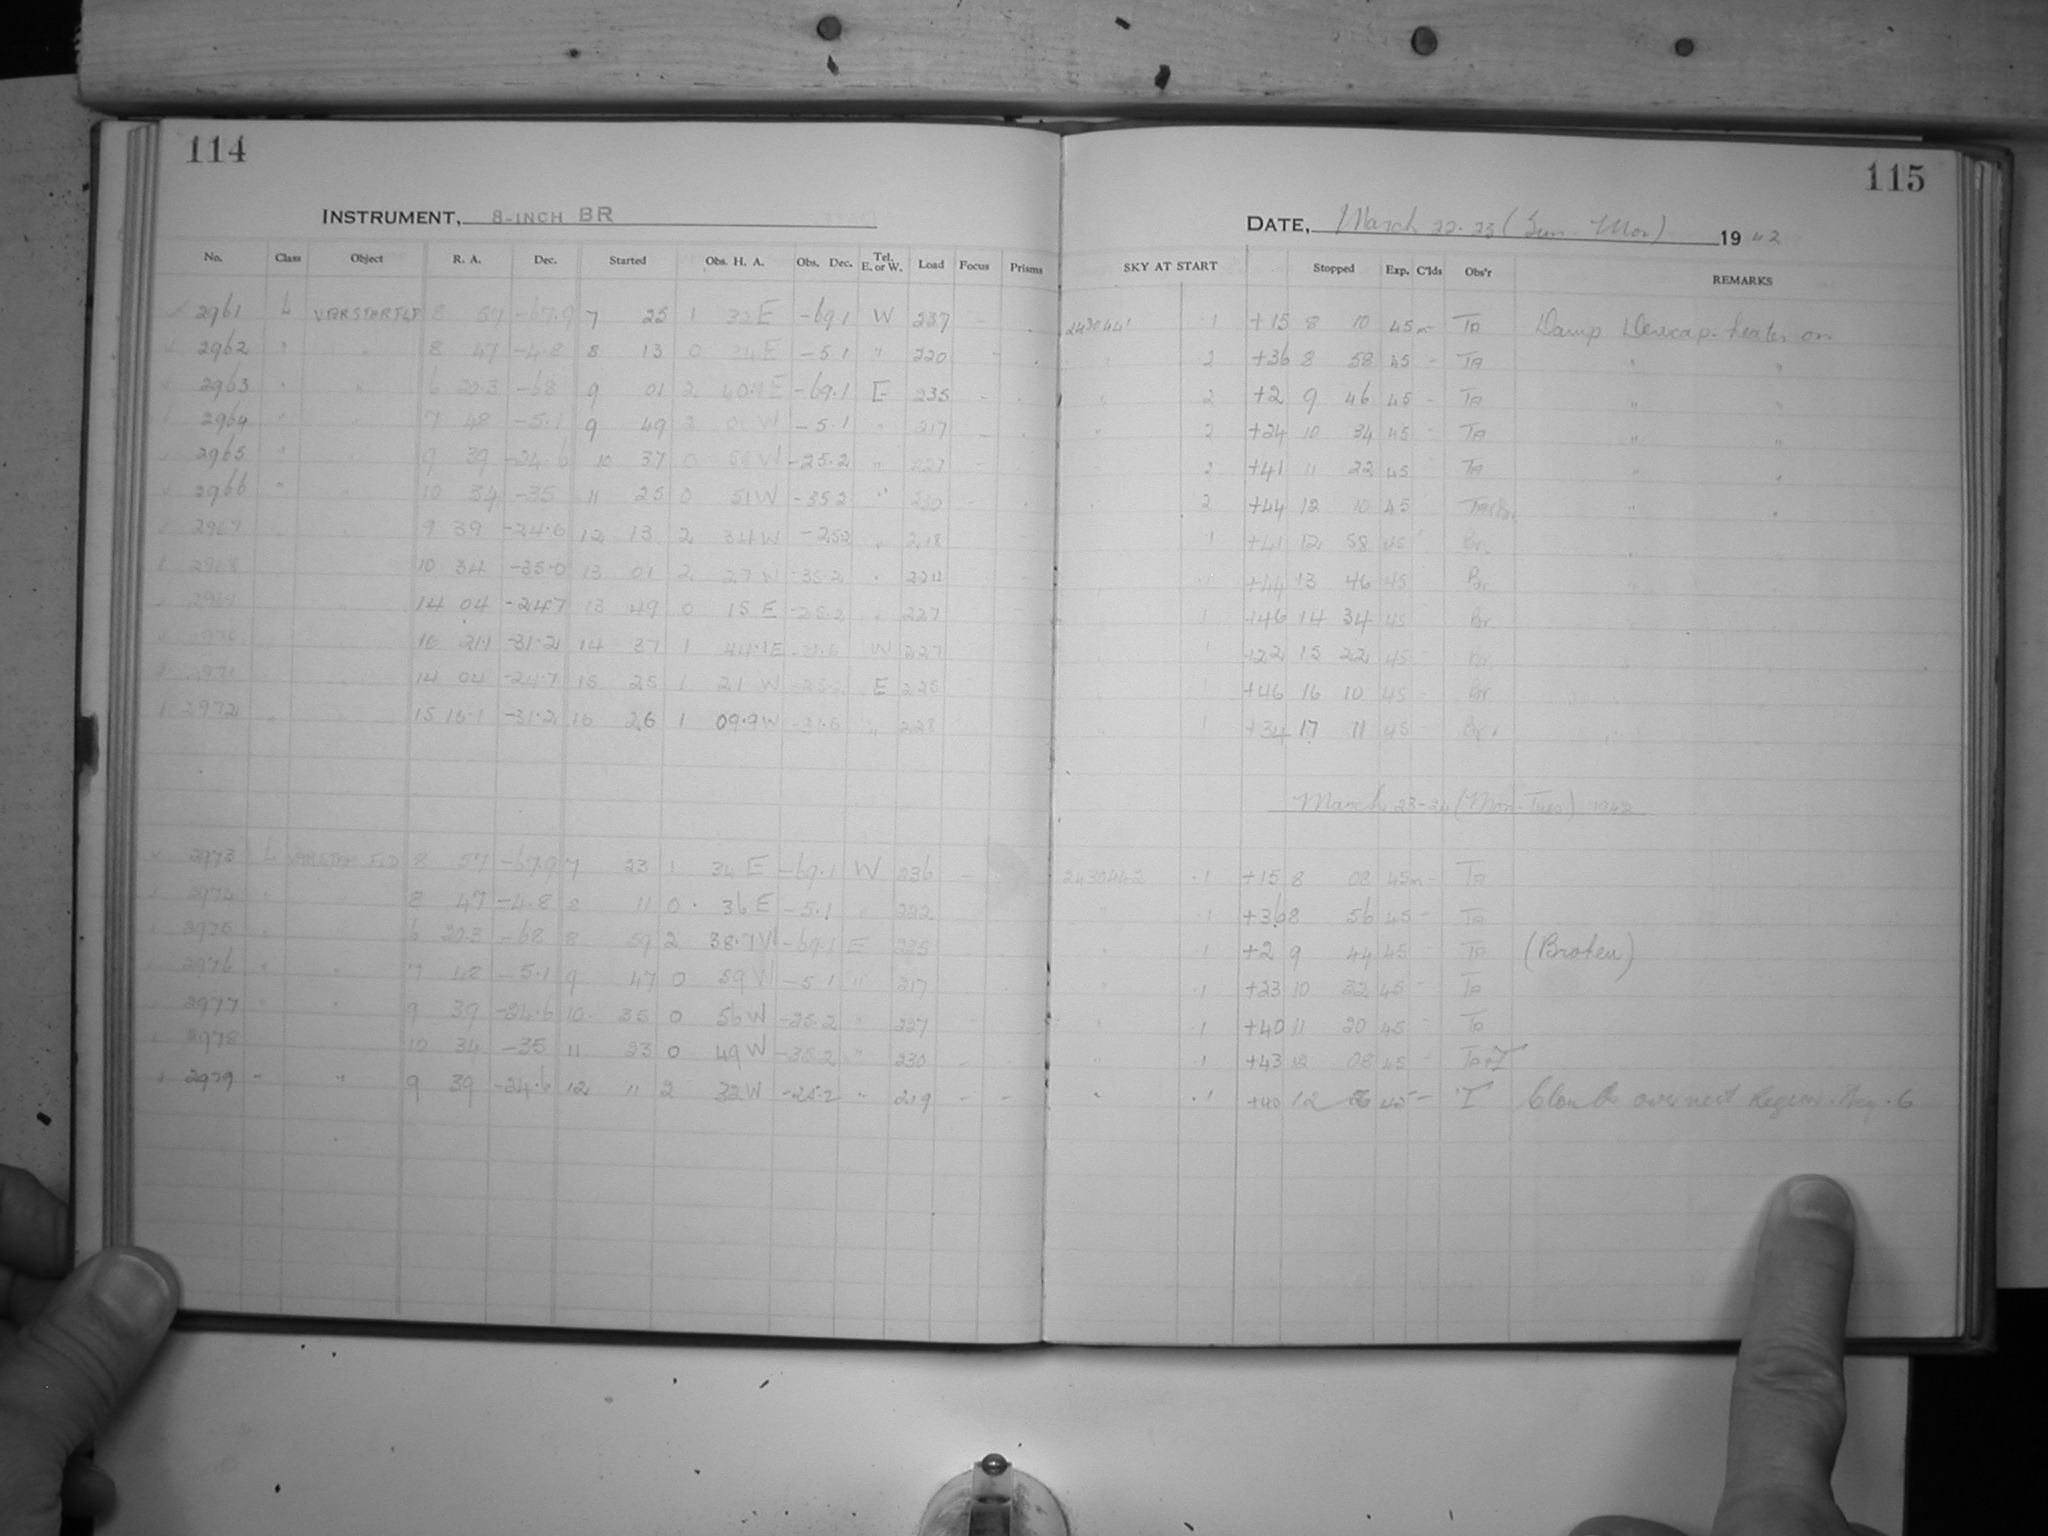 114
INSTRUMENT, 8-INCH BR
No. Class Object R. A. Dec. Started Obs. H. A. Obs. Dec. Tel. E. or W. Load Focus Prisms
2961 L VAR STAR FLD 8 57 -67.9 7 25 1 32 E -69.1 W 237 -
2962 " " 8 47 -4.8 8 13 0 34 E -5.1 " 220 -
2963 " " 6 20.3 -68 9 01 2 40.7 E -69.1 E 235 -
2964 " " 7 48 -5.1 9 49 01 W -5.1 " 217 -
2965 " " 9 39 -24.6 10 37 0 58 W -25.2 " 227 -
2966 " " 10 34 -35 11 25 0 51 W -35.2 " 230 -
2967 9 39 -24.6 12 13 2 34 W -25.2 " 218
2968 10 34 -35.0 13 01 2 27 W -35.2 "
2969 14 04 -24.7 13 49 0 15 E -25.2 " 227
2970 16 21.1 -31.2 14 37 1 44.1 E -31.6 W 227
2971 14 04 -24.7 15 25 1 21 W -25.2 E 225
2972 " " 15 16.1 -31.2 16 26 1 09.9 W -31.6 " 228
2973 L VAR STAR FLD 8 57 -67.9 7 23 1 34 E -69.1 W 236 -
2974 " " 8 47 -4.8 8 11 0 36 E -5.1 " 222
2975 " " 6 20.3 -68 8 59 2 38.7 W -69.1 E 235
2976 " " 7 48 -5.1 9 47 0 59 W -5.1 " 217
2977 " " 9 39 -24.6 10 35 0 56 W -25.2 " 227
2978 10 34 -35 11 23 0 49 W -35.2 " 230 -
2979 " " 9 39 -24.6 12 11 2 32 W -25.2 " 219 - -
115
DATE, March 22-23 (Sun-Mon) 1942
SKY AT START Stopped Exp. C'lds Obs'r REMARKS
2430441 .1 +15 8 10 45m - TA Damp Dewcap-heater on
" 2 +36 8 58 45 - TA " "
" 2 +2 9 46 45 - TA " "
" 2 +24 10 34 45 - TA " "
" 2 +41 11 22 45 TA " "
" 2 +44 12 10 45 TA+Br. " "
1 +41 12 58 45 Br. " "
1 +44 13 46 45 Br
1 +46 14 34 45 Br
1 +22 15 22 45 Br
1 +46 16 10 45 Br
1 +34 17 11 45 Br
March 23-24 (Mon-Tues) 1942
2430442 .1 +15 8 08 45m - TA
" .1 +36 8 56 45 - TA
" .1 +2 9 44 45 - TA (Broken)
" .1 +23 10 32 45 - TA
" .1 +40 11 20 45 - TA
" .1 +43 12 08 45 - TA+I
" .1 +40 12 56 45 - I Clouds over next Region.